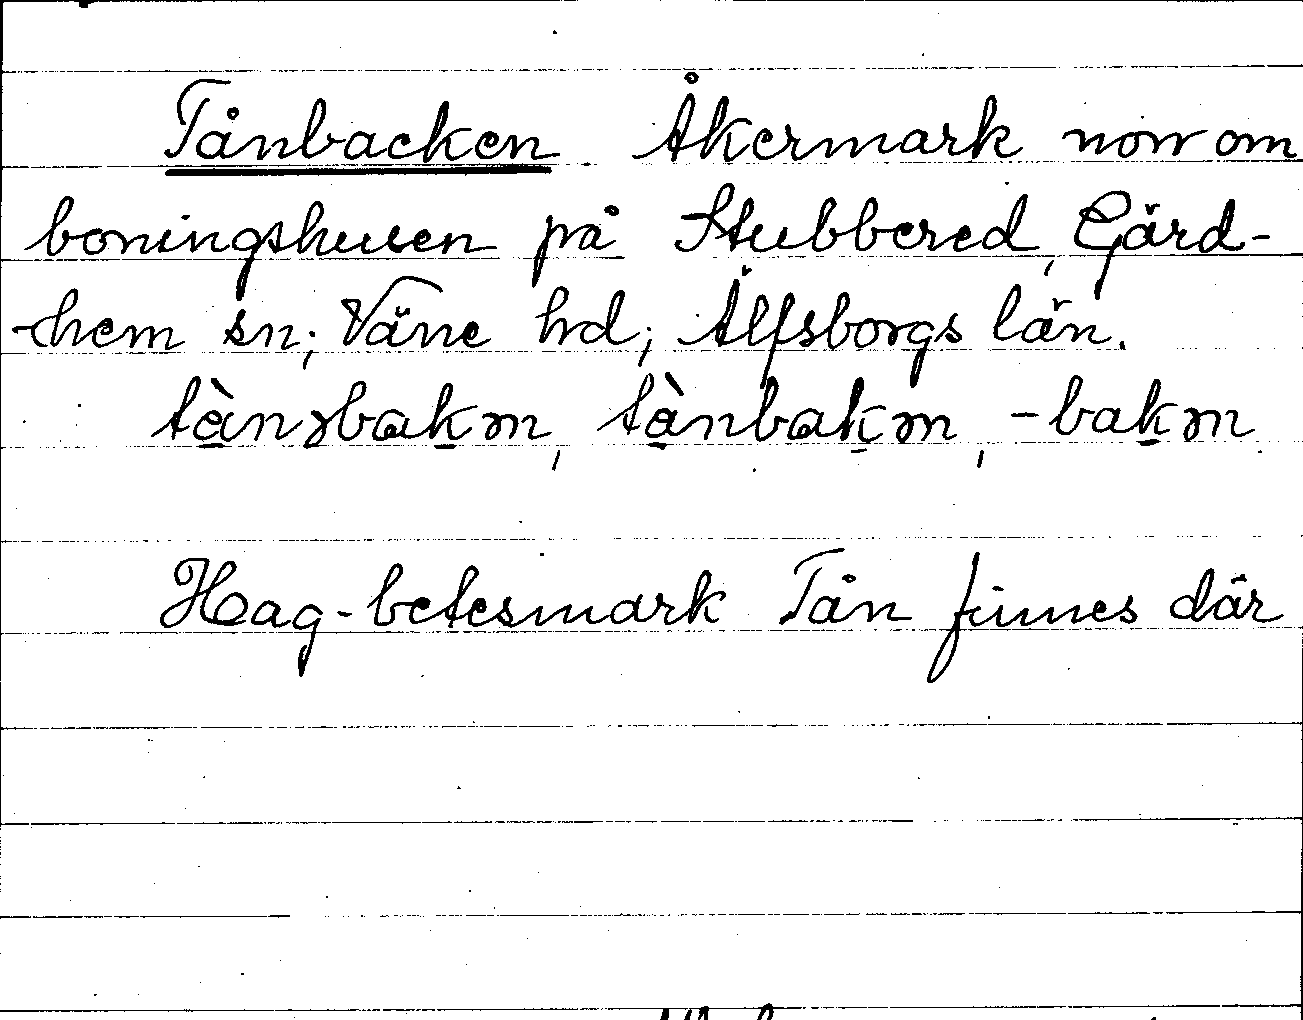 Tånbacken. Åkermark norr om
boningshusen på Stubbered, Gärd-
hem sn; Väne hd; Älfsborgs län.
tànəbakən, tànbakən, -bakən
Hag-betesmark Tån finnes där